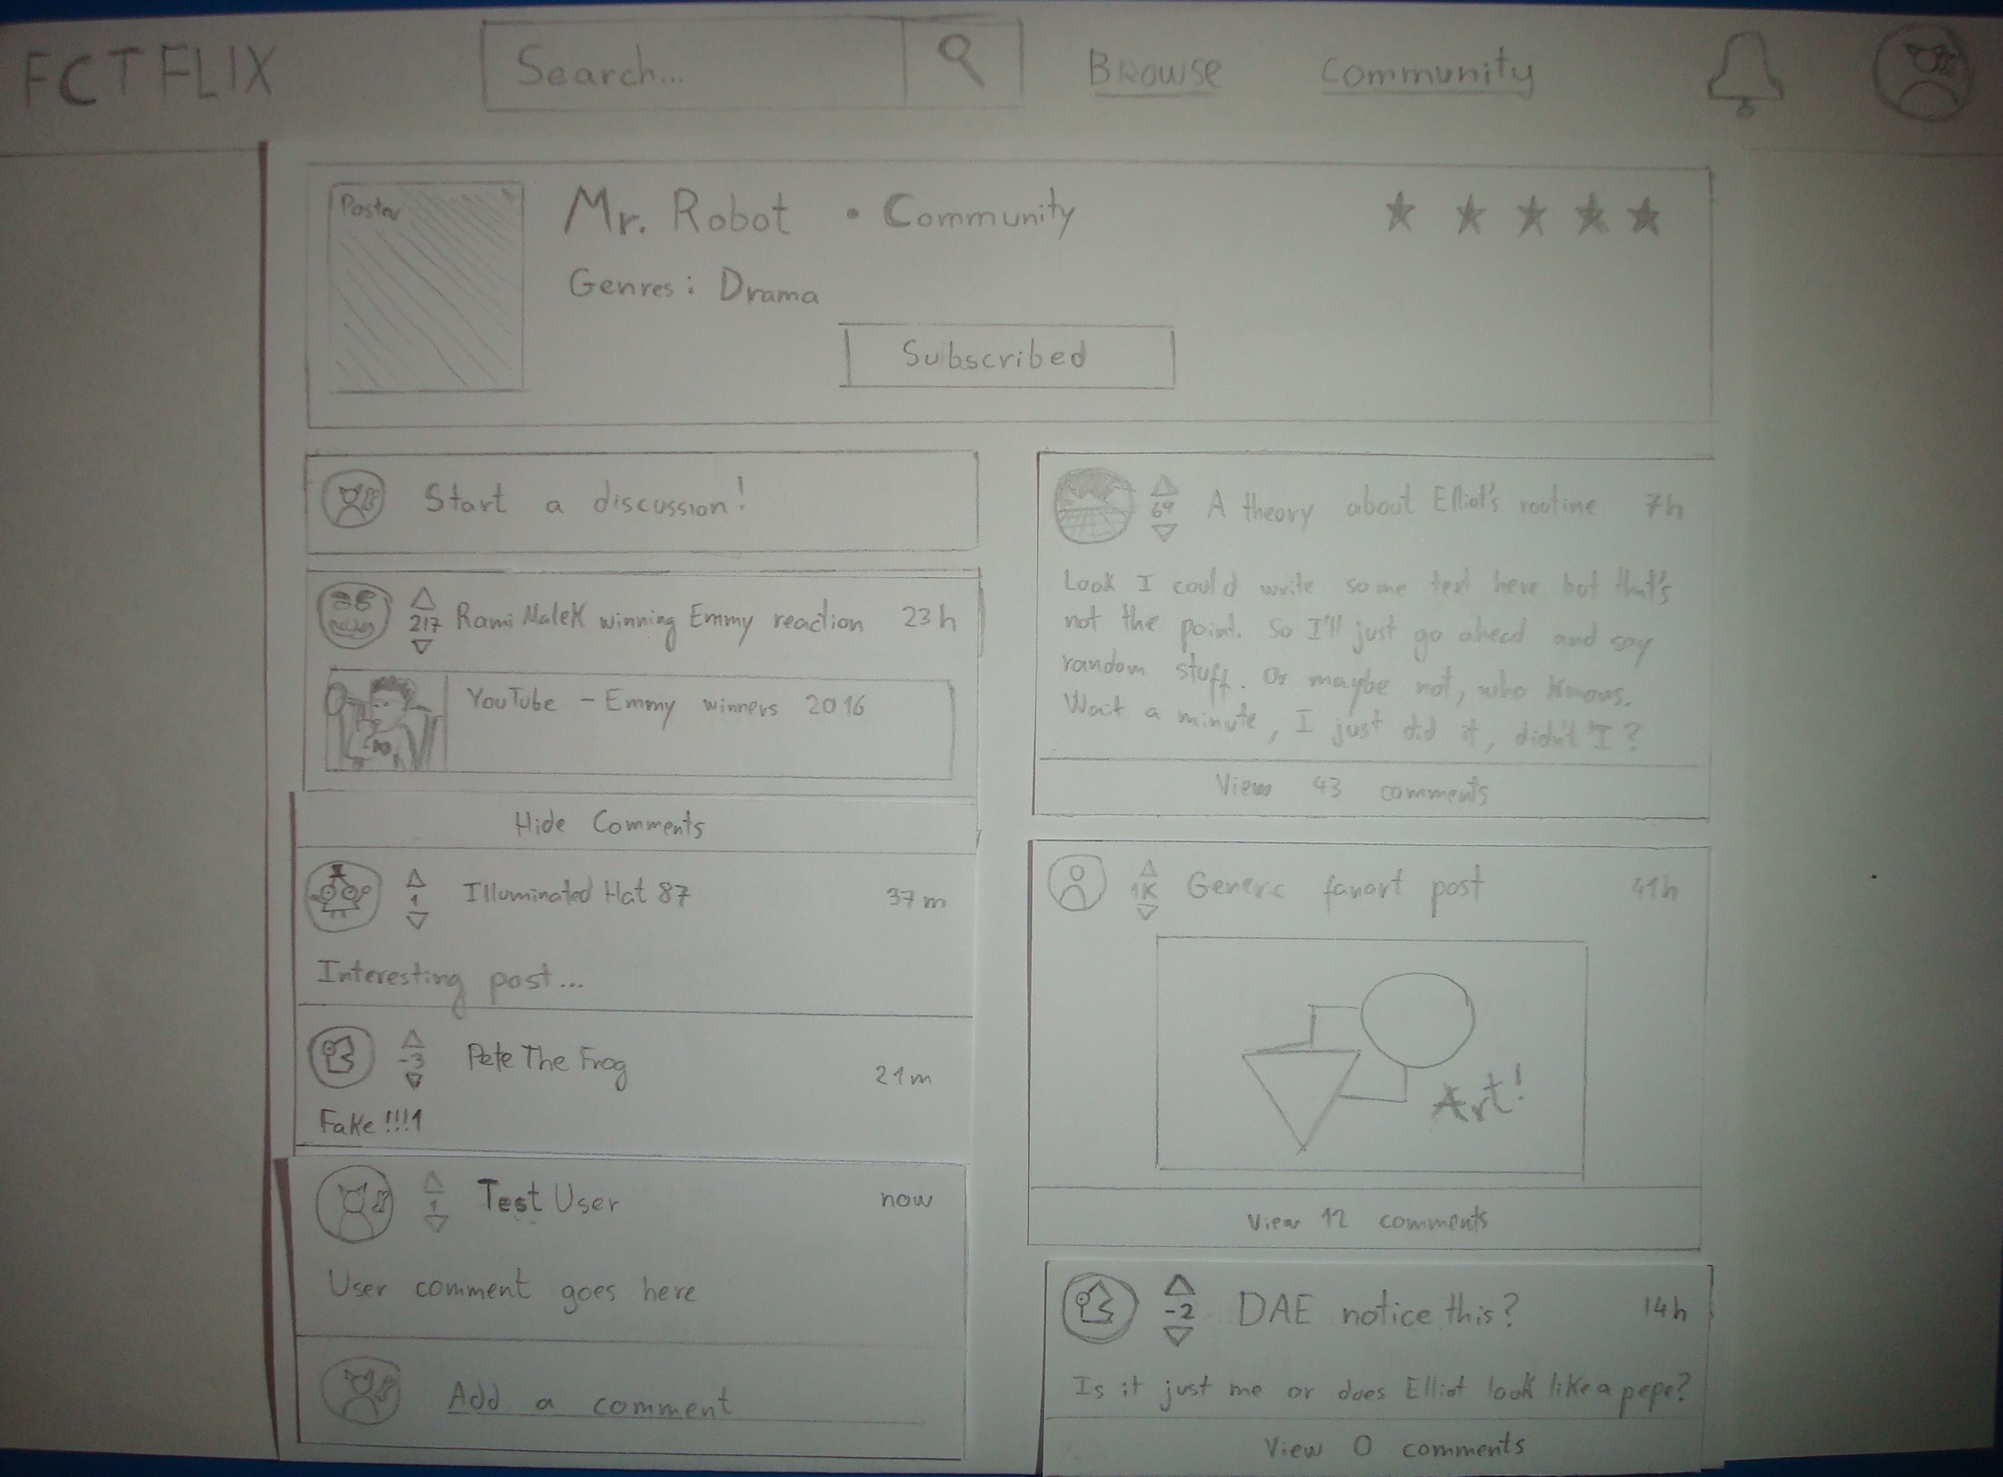 FCTFLIX
Search...
Browse
Community
Poster
Mr. Robot • Community
Genres: Drama
Subscribed
Start a discussion!
217
Rami Malek winning Emmy reaction
23h
YouTube - Emmy winners 2016
Hide Comments
1
Illuminated Hat 87
37m
Interesting post...
-3
Pete The Frog
21m
Fake!!!1
1
Test User
now
User comment goes here
Add a comment
69
A theory about Elliot's routine
7h
Look I could write some text here but that's
not the point. So I'll just go ahead and say
random stuff. Or maybe not, who knows.
Wait a minute, I just did it, didn't I?
View 43 comments
1K
Generic fanart post
41h
Art!
View 12 comments
-2
DAE notice this?
14h
Is it just me or does Elliot look like a pepe?
View 0 comments